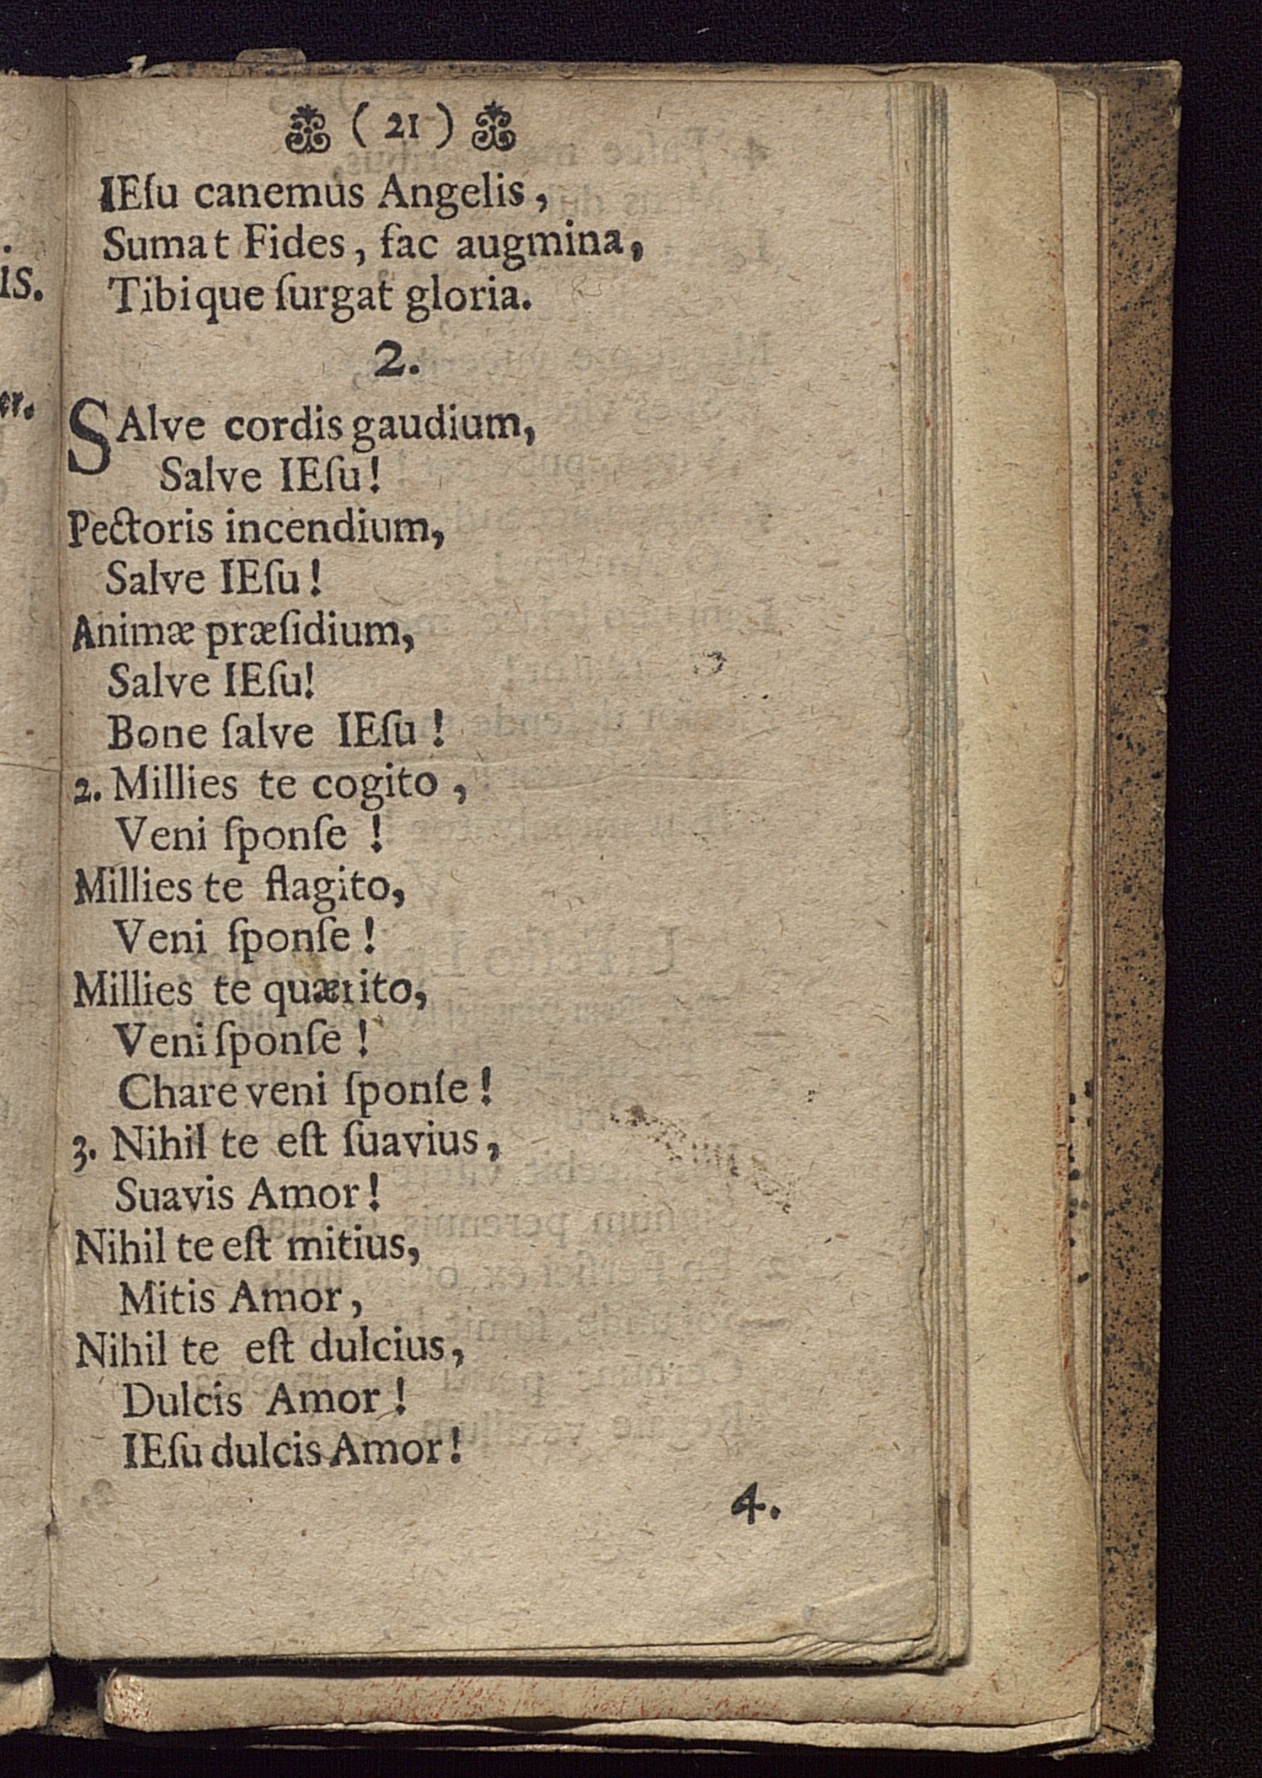 ( 21 )
IEſu canemus Angelis,
Sumat Fides, fac augmina,
Tibique ſurgat gloria.
2.
SAlve cordis gaudium,
Salve IEſu!
Pectoris incendium,
Salve IEſu!
Animæ præſidium,
Salve IEſu!
Bone ſalve IEſu!
2. Millies te cogito,
Veni ſponſe!
Millies te flagito,
Veni ſponſe!
Millies te quærito,
Veni ſponſe!
Chare veni ſponſe!
3. Nihil te eſt ſuavius,
Suavis Amor!
Nihil te eſt mitius,
Mitis Amor,
Nihil te eſt dulcius,
Dulcis Amor!
IEſu dulcis Amor!
4.